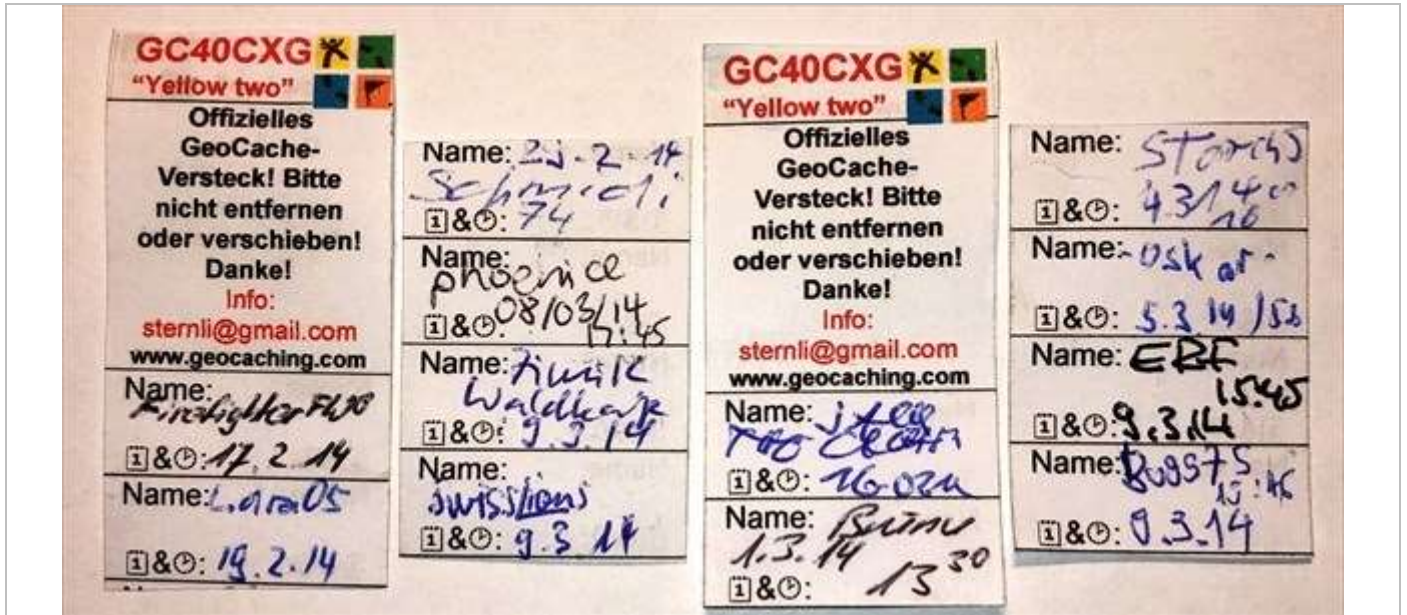 GC40CXG
“Yellow two”
Offizielles
GeoCache-
Versteck! Bitte
nicht entfernen
oder verschieben!
Danke!
Info:
sternli@gmail.com
www.geocaching.com
Name:
Firefighter
&: 17.2.14
Name: Lara05
&: 19.2.14
Name: 2.14
Schmidi
&: 74
Name:
phoenice
08/03/14
&: 17:45
Name:
&: 9.3.14
Name:
swisslions
&: 9.3.14
GC40CXG
“Yellow two”
Offizielles
GeoCache-
Versteck! Bitte
nicht entfernen
oder verschieben!
Danke!
Info:
sternli@gmail.com
www.geocaching.com
Name:
&:
Name:
1.3.14
&: 13 30
Name:
&:
Name: -Oskar-
&: 5.3.14
Name: EBF
15.45
&: 9.3.14
Name: Bugs75
15:46
&: 9.3.14